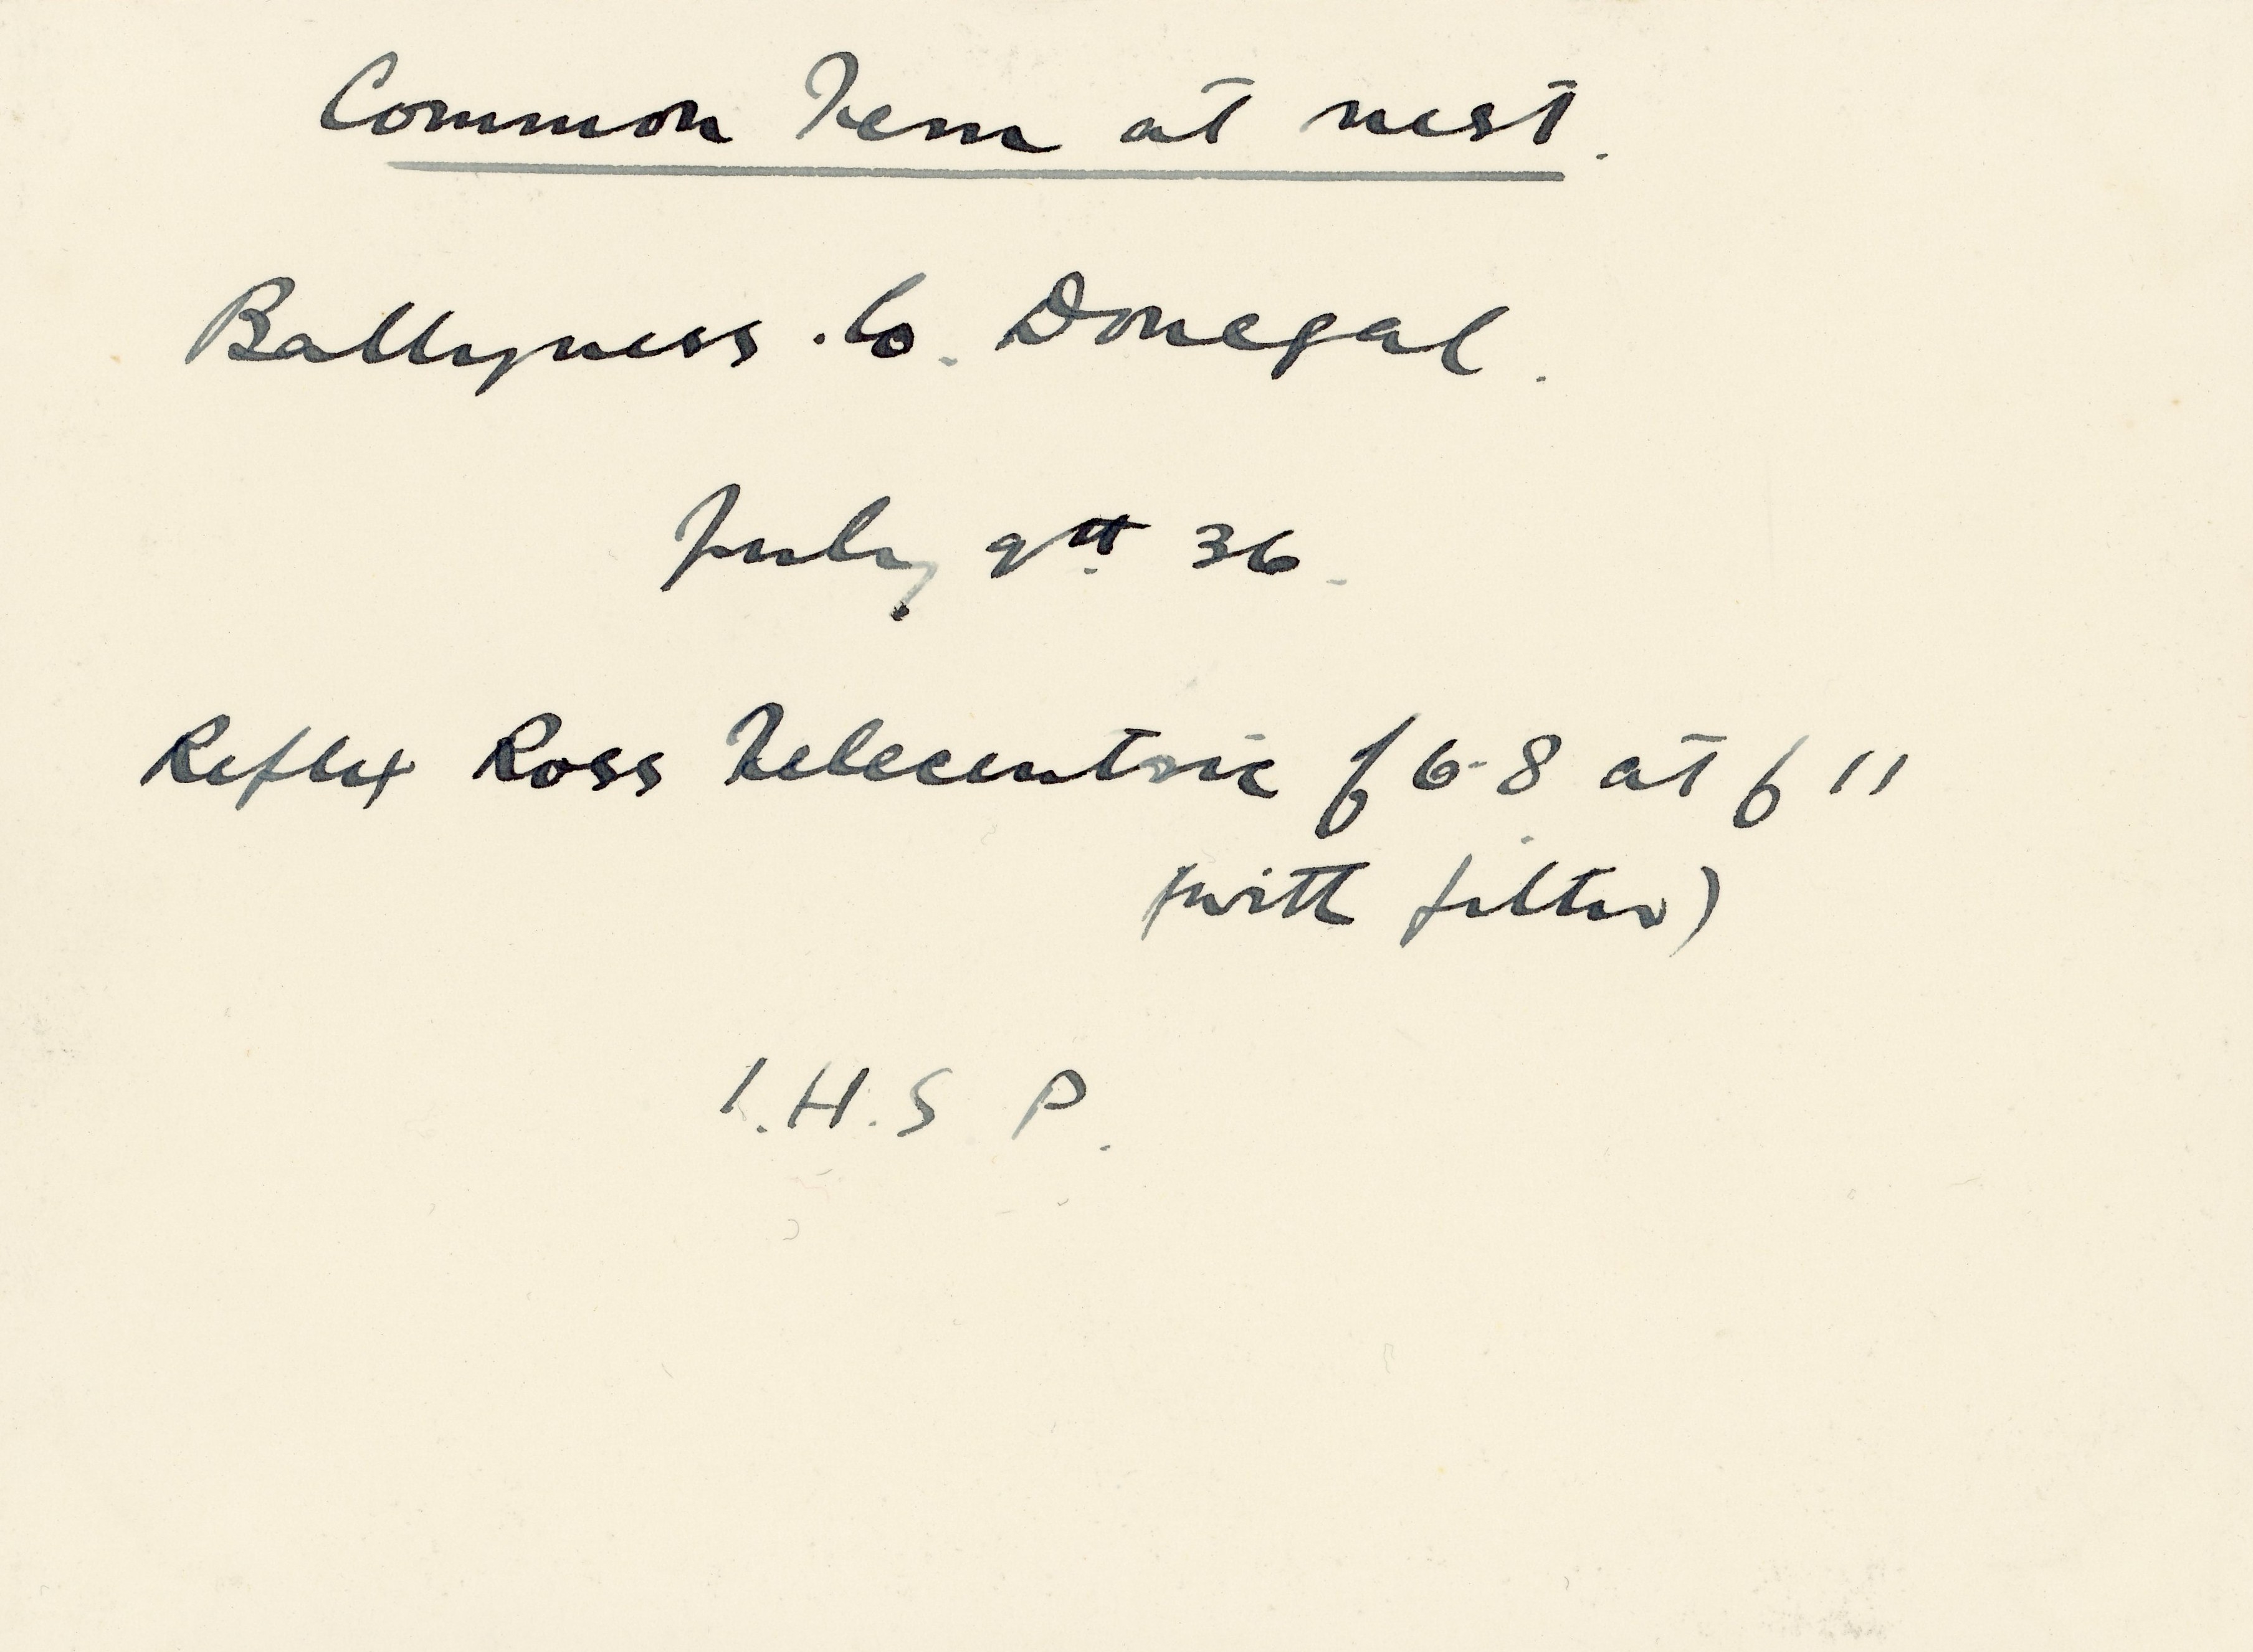 Common Tern at nest.
Ballyness . Co. Donegal.
July 9th 36.
Reflex Ross Telecentric f 6.8 at f 11
(with filter)
I.H.S P.